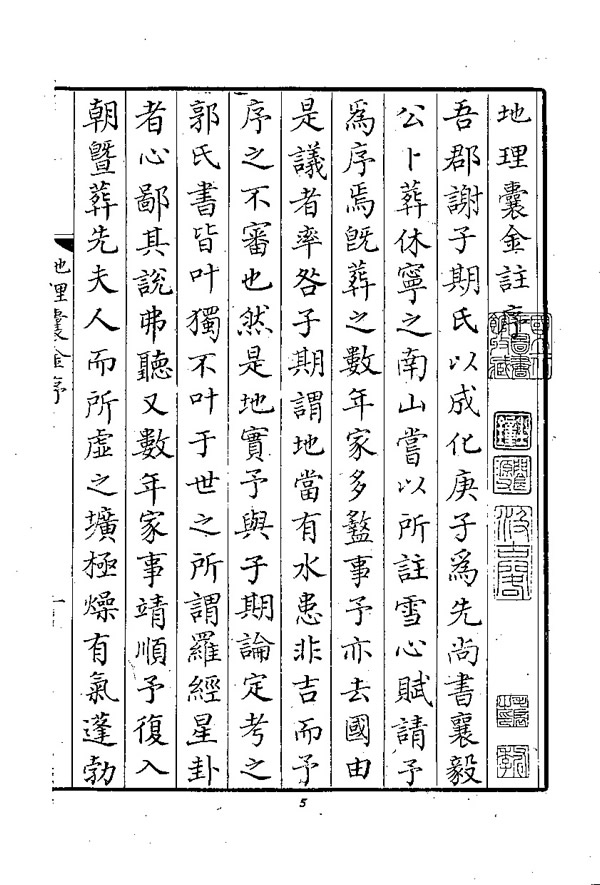 地理囊金註序
吾郡謝子期氏以成化庚子爲先尚書襄毅
公卜葬休寧之南山嘗以所註雪心賦請予
爲序焉旣葬之數年家多盭事予亦去國由
是議者率咎子期謂地當有水患非吉而予
序之不審也然是地實予與子期論定考之
郭氏書皆叶獨不叶于世之所謂羅經星卦
者心鄙其說弗聽又數年家事靖順予復入
朝曁葬先夫人而所虛之壙極燥有氣蓬勃
地理囊金序
一
5